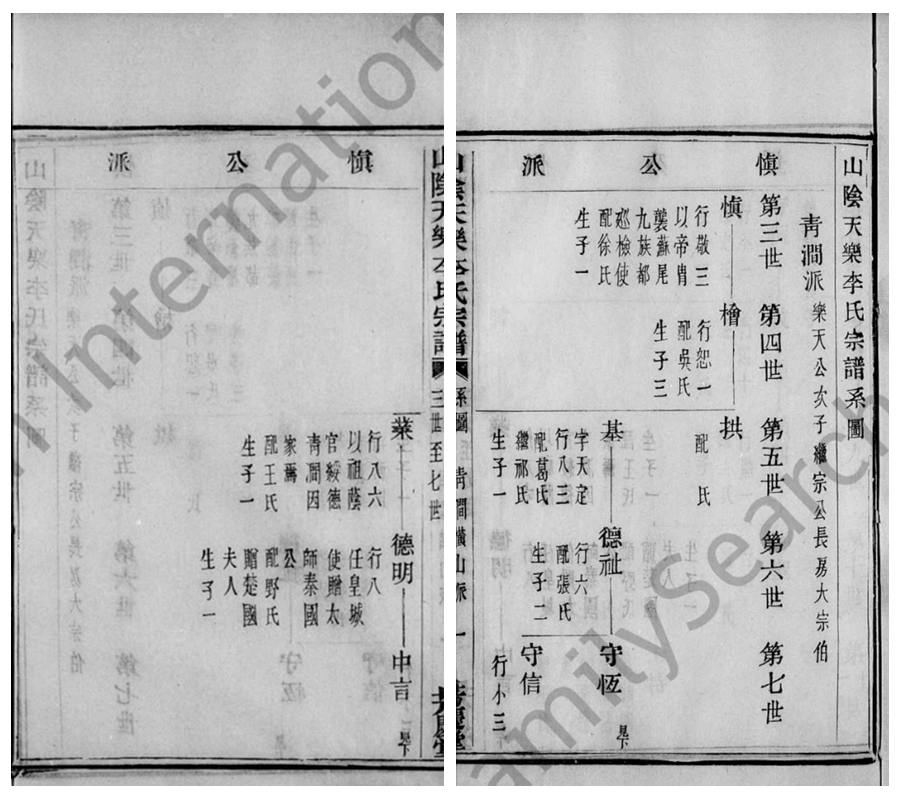 山陰天樂李氏宗譜系圖
青澗派
樂天公次子繼宗公長房大宗伯
慎公派
第三世 第四世 第五世 第六世 第七世
慎
行敬三
以帝胄
襲蘇尾
九族都
廵檢使
配徐氏
生子一
檜
行恕一
配吳氏
生子三
拱
配 氏
基
字天定
行八三
配葛氏
繼祁氏
生子一
德祉
行六
配張氏
生子二
守恆
見下
守信
行小三
山陰天樂李氏宗譜
系圖
三世至七世
青澗橫山派
一
慎公派
業
行八六
以祖蔭
官綬德
青澗因
家焉
配王氏
生子一
德明
行八
任皇城
使贈太
師秦國
公
配野氏
贈楚國
夫人
生子一
中言
見下
International
FamilySearch